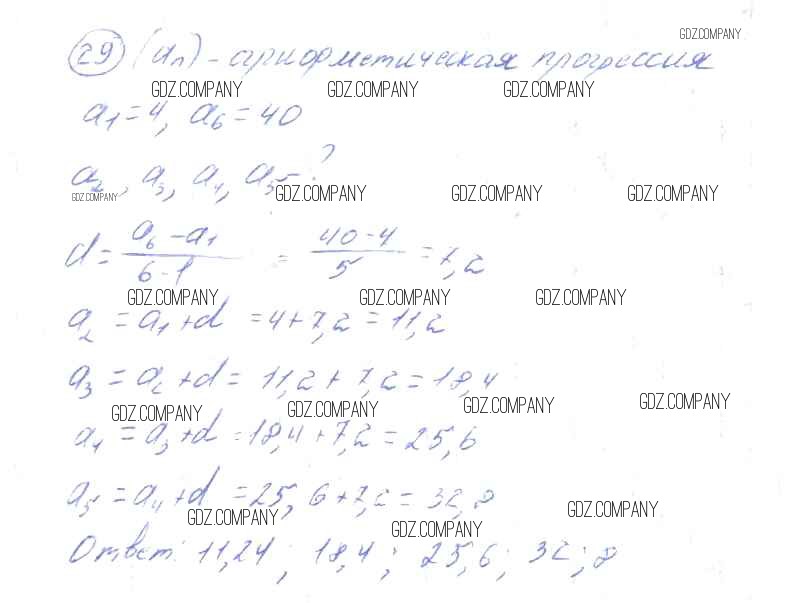 GDZ.COMPANY
29 (an) - арифметическая прогрессия
GDZ.COMPANY GDZ.COMPANY GDZ.COMPANY
a1 = 4, a6 = 40
a2, a3, a4, a5 - ?
GDZ.COMPANY GDZ.COMPANY GDZ.COMPANY GDZ.COMPANY
d = (a6 - a1)/(6-1) = (40-4)/5 = 7,2
GDZ.COMPANY GDZ.COMPANY GDZ.COMPANY
a2 = a1 + d = 4 + 7,2 = 11,2
a3 = a2 + d = 11,2 + 7,2 = 18,4
GDZ.COMPANY GDZ.COMPANY GDZ.COMPANY GDZ.COMPANY
a4 = a3 + d = 18,4 + 7,2 = 25,6
a5 = a4 + d = 25,6 + 7,2 = 32,8
GDZ.COMPANY GDZ.COMPANY GDZ.COMPANY
Ответ: 11,24; 18,4; 25,6; 32;8